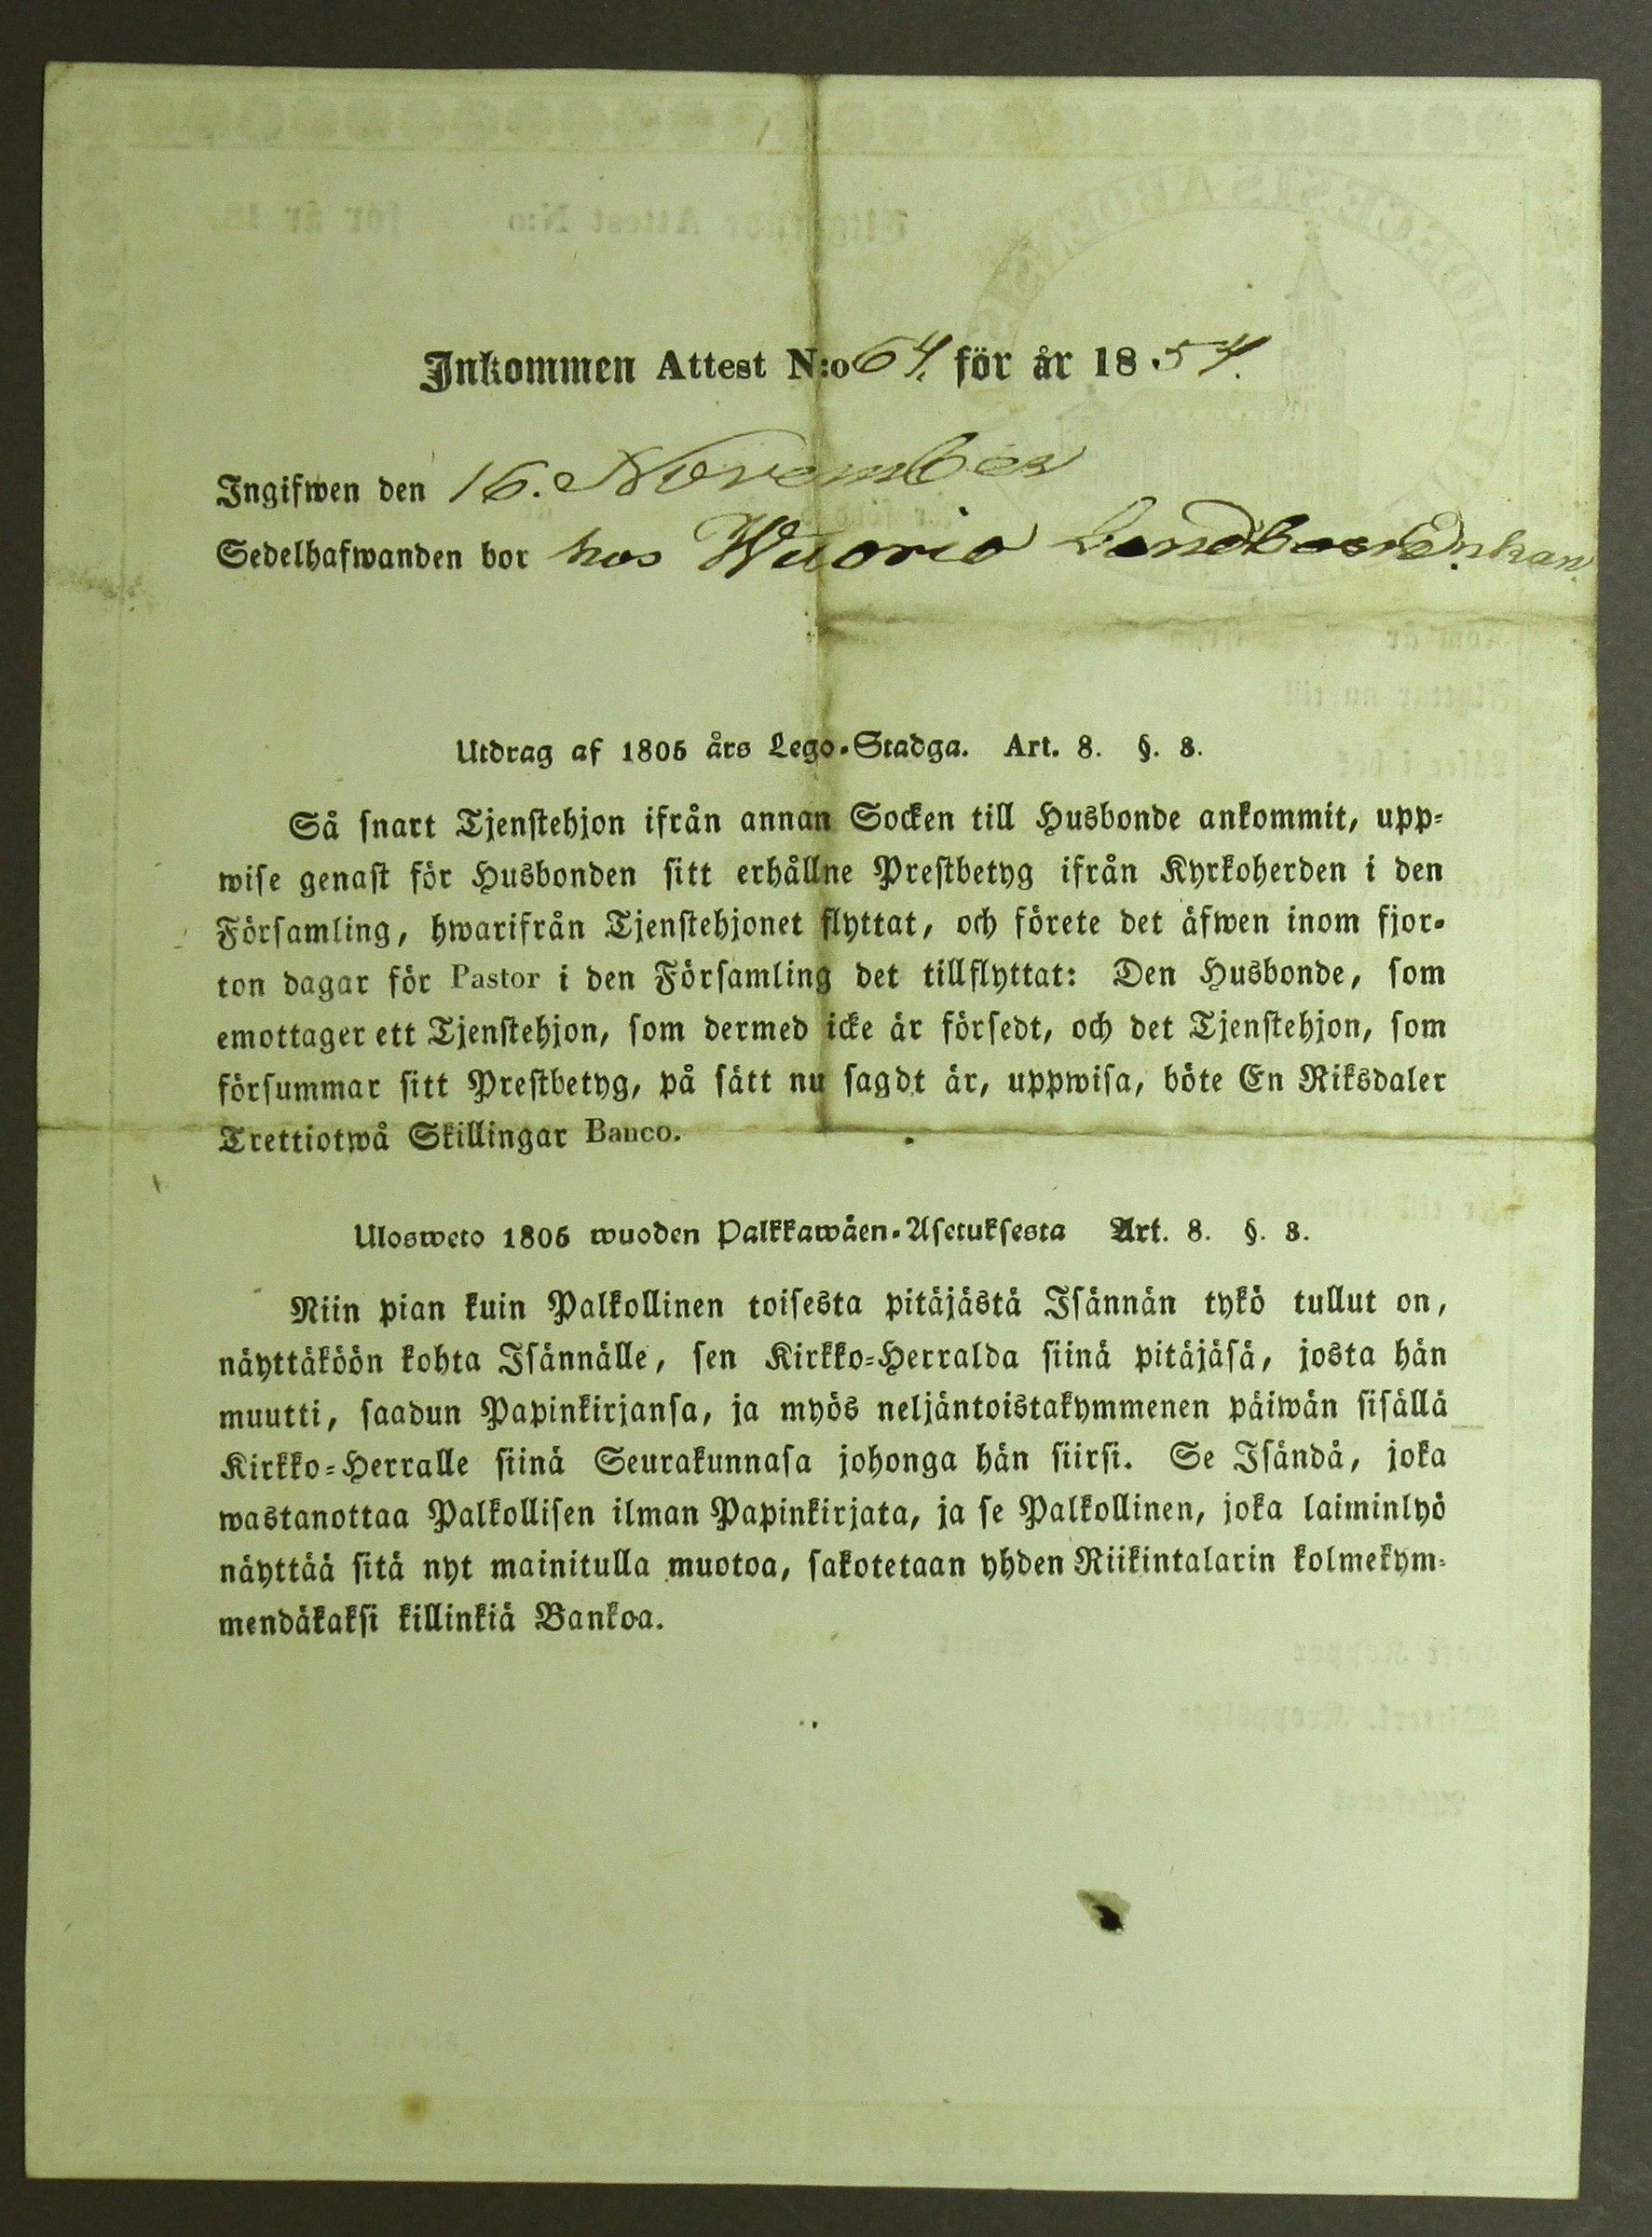 Inkommen Attest N:o 64. för år 1854.
Ingifwen den 16. November
Sedelhafwanden bor hos Wuorio
Utdrag af 1805 års Lego-Stadga. Art. 8. §. 3.
Så snart Tjenstehjon ifrån annan Socken till Husbonde ankommit, upp-
wise genast för Husbonden sitt erhållne Prestbetyg ifrån Kyrkoherden i den
Församling, hwarifrån Tjenstehjonet flyttat, och förete det äfwen inom fjor-
ton dagar för Pastor i den Församling det tillflyttat: Den Husbonde, som
emottager ett Tjenstehjon, som dermed icke är försedt, och det Tjenstehjon, som
försummar sitt Prestbetyg, på sätt nu sagdt är, uppwisa, böte En Riksdaler
Trettiotwå Skillingar Banco.
Ulosweto 1805 wuoden Palkkawäen-Asetuksesta Art. 8. §. 3.
Niin pian kuin Palkollinen toisesta pitäjästä Isännän tykö tullut on,
näyttäköön kohta Isännälle, sen Kirkko-Herralda siinä pitäjäsä, josta hän
muutti, saadun Papinkirjansa, ja myös neljäntoistakymmenen päiwän sisällä
Kirkko-Herralle siinä Seurakunnasa johonga hän siirsi. Se Isändä, joka
wastanottaa Palkollisen ilman Papinkirjata, ja se Palkollinen, joka laiminlyö
näyttää sitä nyt mainitulla muotoa, sakotetaan yhden Riikintalarin kolmekym-
mendäkaksi killinkiä Bankoa.